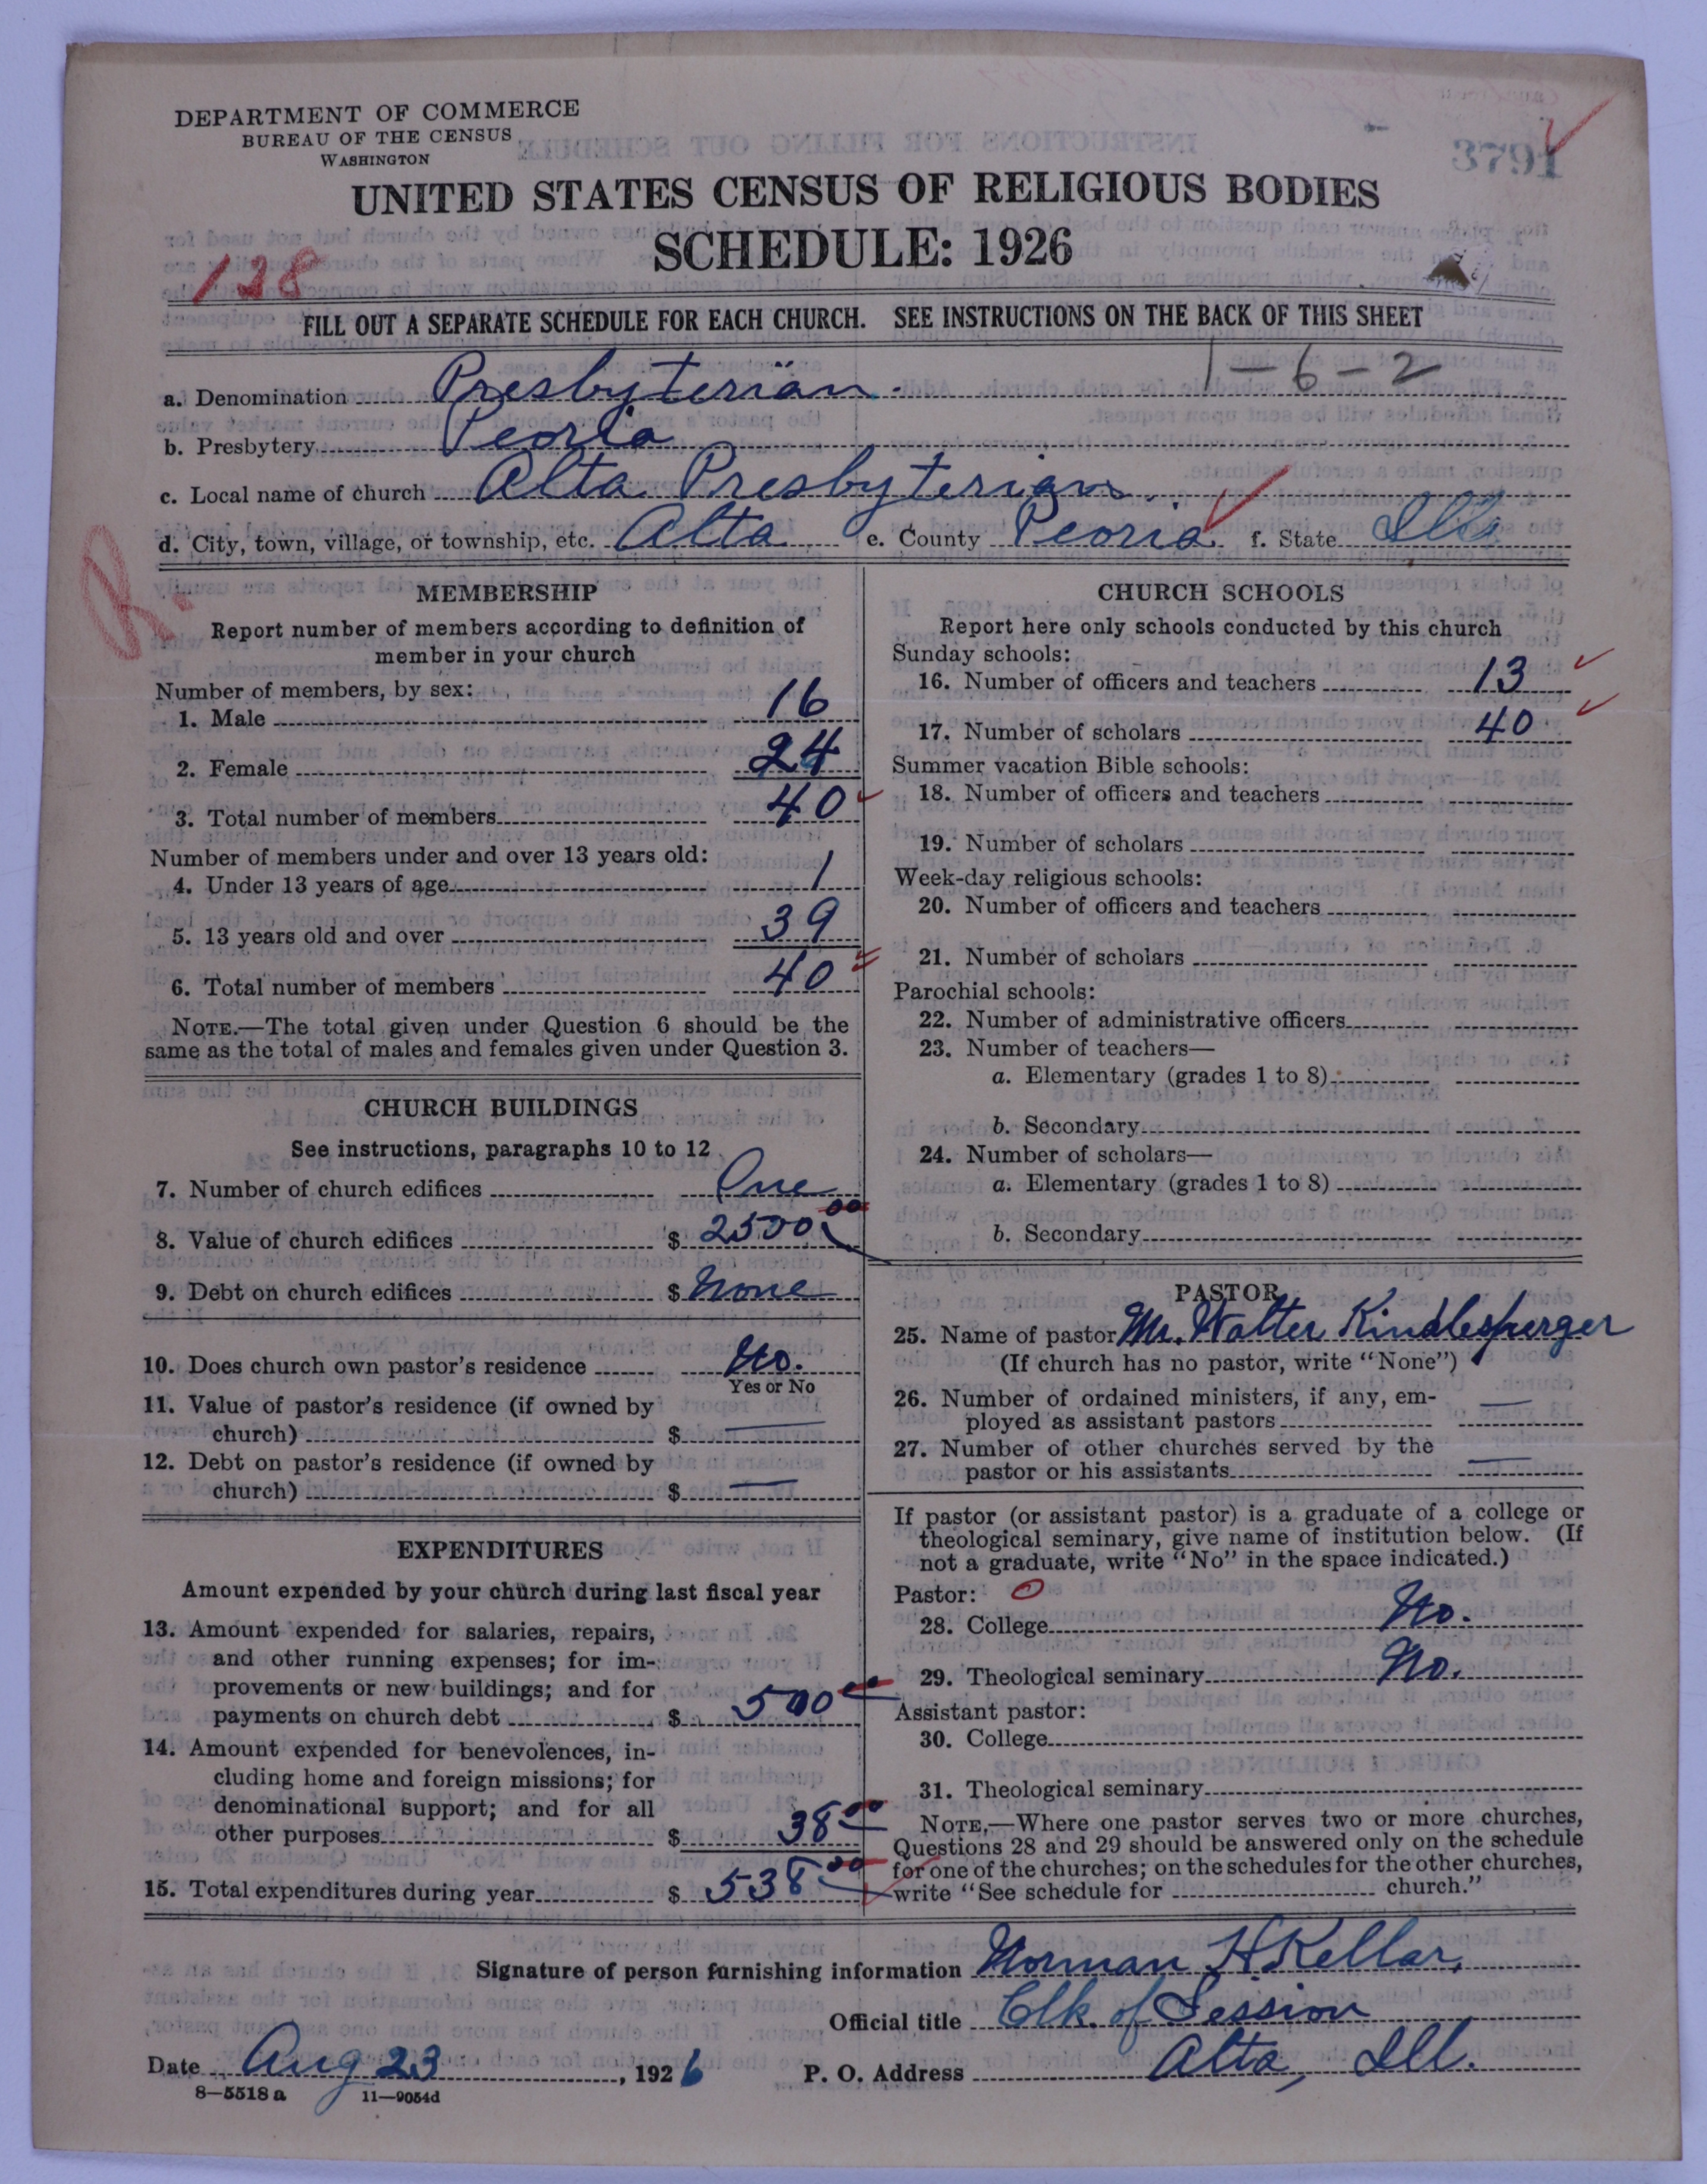 DEPARTMENT OF COMMERCE
BUREAU OF THE CENSUS
WASHINGTON
3791
UNITED STATES CENSUS OF RELIGIOUS BODIES
SCHEDULE: 1926
128
FILL OUT A SEPARATE SCHEDULE FOR EACH CHURCH. SEE INSTRUCTIONS ON THE BACK OF THIS SHEET
1-6-2
a. Denomination Presbyterian.
b. Presbytery Peoria
c. Local name of church Alta Presbyterian.
d. City, town, village, or township, etc. Alta e. County Peoria f. State Ill
R.
MEMBERSHIP
Report number of members according to definition of
member in your church
Number of members, by sex:
1. Male 16
2. Female 24
3. Total number of members 40
Number of members under and over 13 years old:
4. Under 13 years of age 1
5. 13 years old and over 39
6. Total number of members 40
NOTE.—The total given under Question 6 should be the
same as the total of males and females given under Question 3.
CHURCH BUILDINGS
See instructions, paragraphs 10 to 12
7. Number of church edifices One
8. Value of church edifices $ 2500 00
9. Debt on church edifices $ None
10. Does church own pastor's residence No.
Yes or No
11. Value of pastor's residence (if owned by
church) $ —
12. Debt on pastor's residence (if owned by
church) $ —
EXPENDITURES
Amount expended by your church during last fiscal year
13. Amount expended for salaries, repairs,
and other running expenses; for im-
provements or new buildings; and for
payments on church debt $ 500 00
14. Amount expended for benevolences, in-
cluding home and foreign missions; for
denominational support; and for all
other purposes $ 38 00
15. Total expenditures during year $ 538 00
CHURCH SCHOOLS
Report here only schools conducted by this church
Sunday schools:
16. Number of officers and teachers 13
17. Number of scholars 40
Summer vacation Bible schools:
18. Number of officers and teachers
19. Number of scholars
Week-day religious schools:
20. Number of officers and teachers
21. Number of scholars
Parochial schools:
22. Number of administrative officers
23. Number of teachers—
a. Elementary (grades 1 to 8)
b. Secondary
24. Number of scholars—
a. Elementary (grades 1 to 8)
b. Secondary
PASTOR
25. Name of pastor Mr. Walter Kindlesparger
(If church has no pastor, write "None")
26. Number of ordained ministers, if any, em-
ployed as assistant pastors —
27. Number of other churches served by the
pastor or his assistants —
If pastor (or assistant pastor) is a graduate of a college or
theological seminary, give name of institution below. (If
not a graduate, write "No" in the space indicated.)
Pastor: O
28. College No.
29. Theological seminary No.
Assistant pastor:
30. College
31. Theological seminary
NOTE.—Where one pastor serves two or more churches,
Questions 28 and 29 should be answered only on the schedule
for one of the churches; on the schedules for the other churches,
write "See schedule for church."
Signature of person furnishing information Norman H. Kellar,
Official title Clk. of Session
Date Aug 23, 1926 P. O. Address Alta, Ill.
8—5518 a 11—9054d